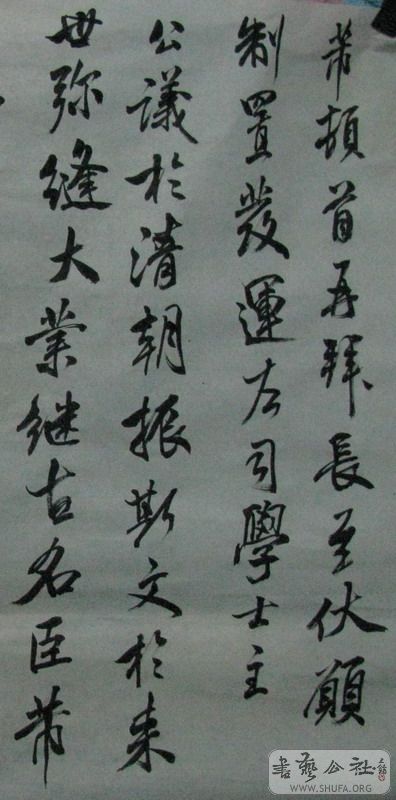 芾頓首再拜長至伏願
制置發運左司學士主
公議於清朝振斯文於來
世弥縫大業继古名臣芾
書藝公社
WWW.SHUFA.ORG